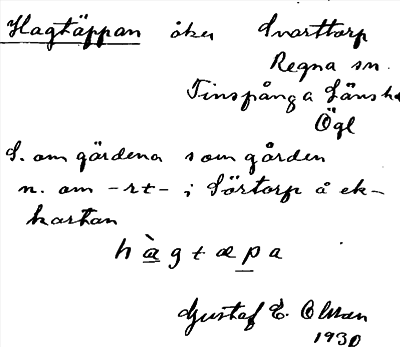 Hagtäppan åker Svarttorp
Regna sn.
Finspånga Länshd
Ögl
S. om gårdena som gården
n. om -rt- i Sörtorp å ek-
kartan
hàgtæpa
Gustaf E. Olsson
1930